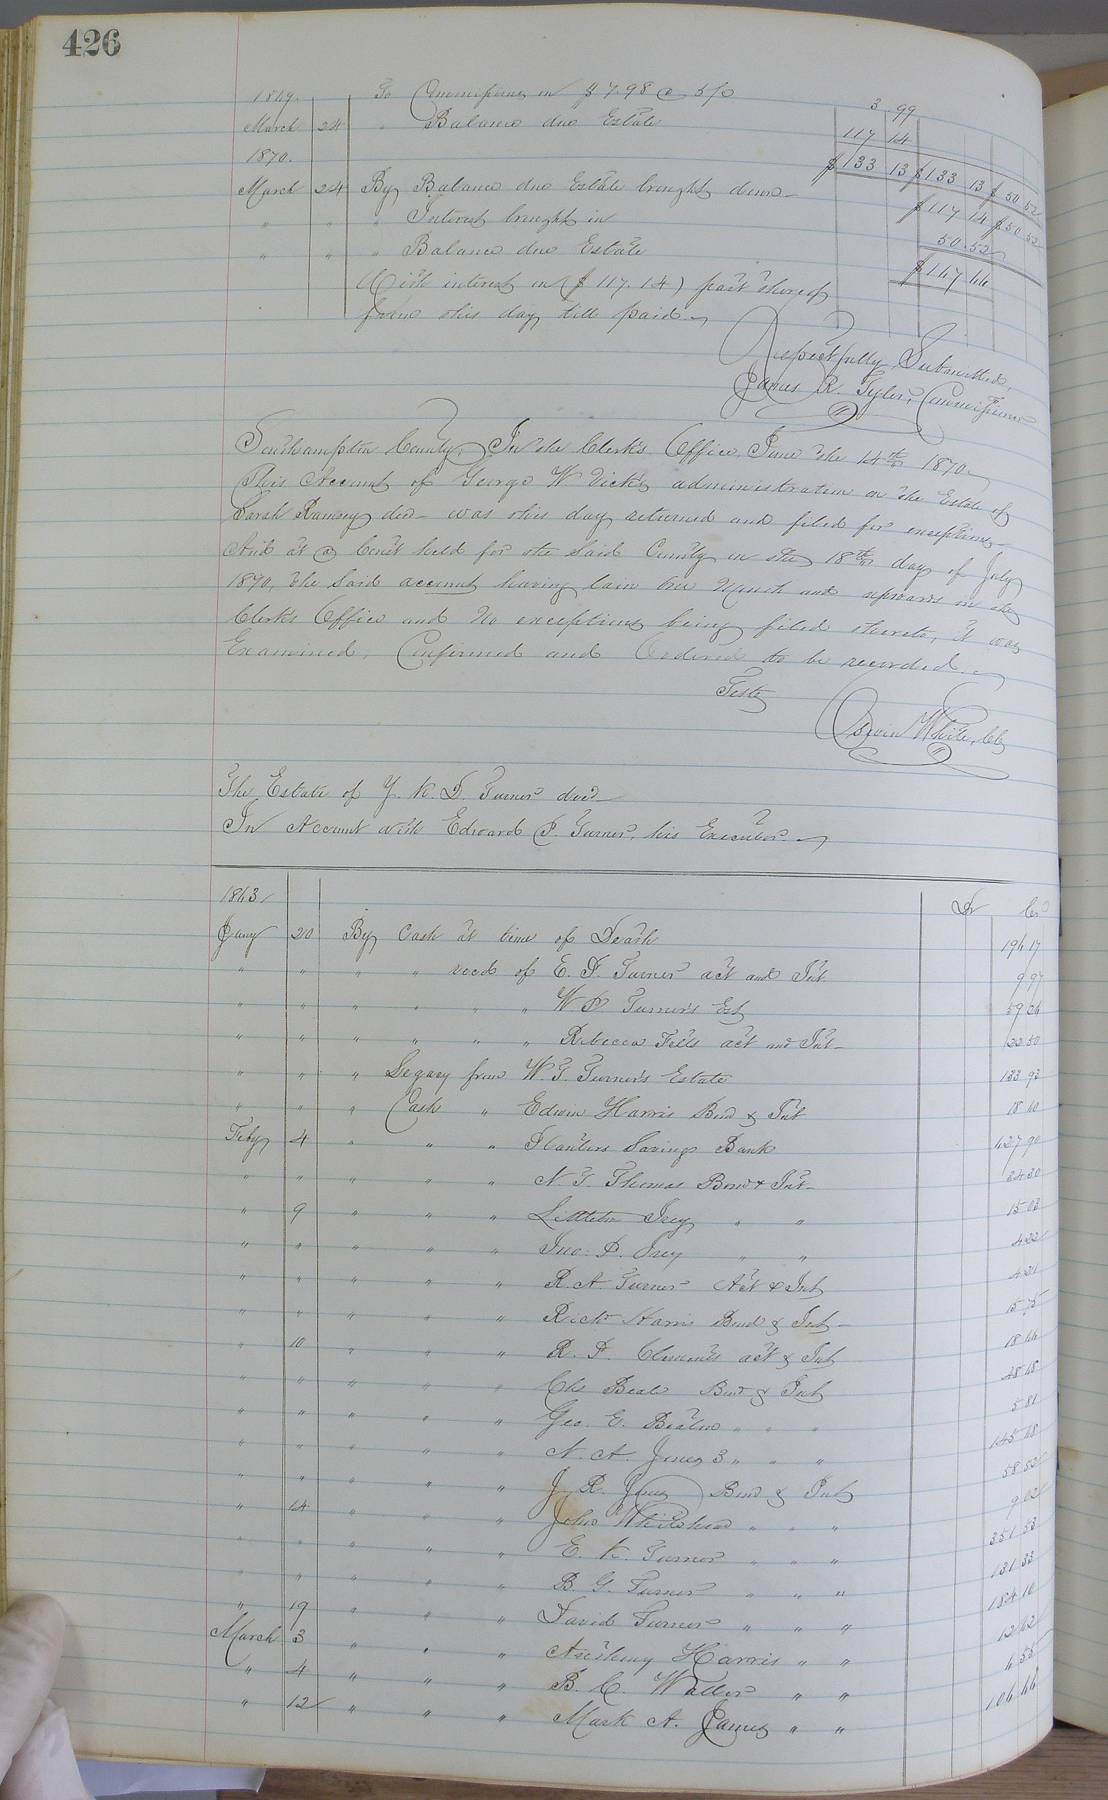 426
1869. To Commissions on $79.80 @ 5 p/c 3 99
March 24 " Balance due Estate 117 14
1870. $133 13 $133 13 $50 52
March 24 By Balance due Estate brought down $117 14 $50 52
" " " Interest brought in 50 52
" " " Balance due Estate $167 66
With interest on ($117.14) part thereof
from this day till paid
Respectfully Submitted,
James R. Tyler, Commissioner
Southampton County, In the Clerk's Office June the 14th 1870
This Account of George W Vick's administration on the Estate of
Sarah Ramsey decd was this day returned and filed for exceptions
And at a Court held for the said County on the 18th day of July
1870, the said account having lain one Month and upwards in the
Clerk's Office and No exceptions being filed thereto, it was
Examined, Confirmed and Ordered to be recorded.
Teste
Edwin White, Clk
The Estate of Y. K. D. Turner decd
In Account with Edward P. Turner, his Executor
1863 Dr Cr
Jany 20 By Cash at time of Death 196 17
" " " " recd of E. P. Turner act and Int 9 97
" " " " " " W P. Turner's Est 59 26
" " " " " " Rebecca Felts act and Int 22 50
" " " Legacy from W. T. Turner's Estate 133 93
" " " Cash " Edwin Harris Bond & Int 18 10
Feby 4 " " " Planters Savings Bank 627 90
" " " " " N. T. Thomas Bond & Int 24 30
" 9 " " " Littleton Ivey " " 15 03
" " " " " Jno. P. Ivey " " 4 22
" " " " " R. A. Turner Act & Int 4 21
" " " " " Richd Harris Bond & Int 15 75
" 10 " " " R. P. Clements act & Int 18 66
" " " " " Chs Beale Bond & Int 48 18
" " " " " Geo. E. Beale " " " 5 81
" " " " " N. A. Jones 3 " " " 145 18
" " " " " J. R. Jones Bond & Int 58 52
" 14 " " " John Whitehead " " " 9 02
" " " " " E. K. Turner " " " 351 53
" " " " " B. G. Turner " " " 131 33
" 19 " " " David Turner " " " 184 10
March 3 " " " Anthony Harris " " 12 62
" 4 " " " B. C. Waller " " 6 55
" 12 " " " Mark A. James " " 106 66